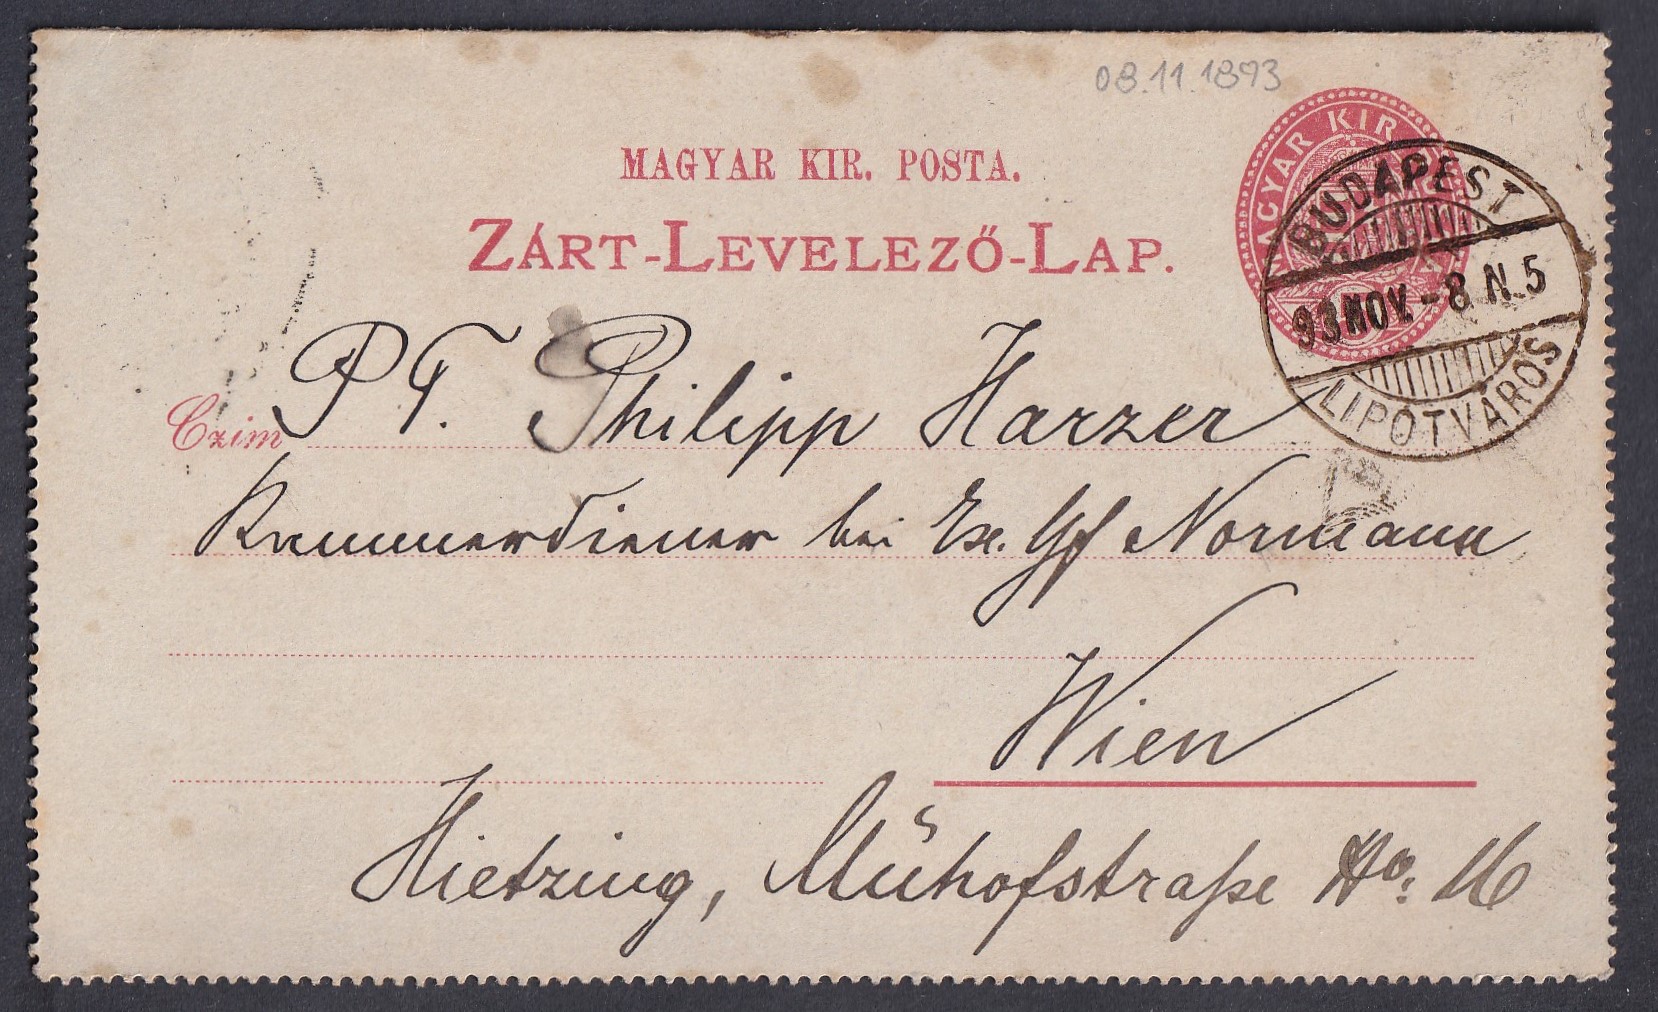 08.11.1893
MAGYAR KIR. POSTA.
ZÁRT-LEVELEZŐ-LAP.
MAGYAR KIR
BUDAPEST
93 NOV. - 8. N. 5
LIPÓTVÁROS
Czim P. T. Philipp Harzer
Kammerdiener bei Exc. Gf Normann
Wien
Hietzing, No. 16